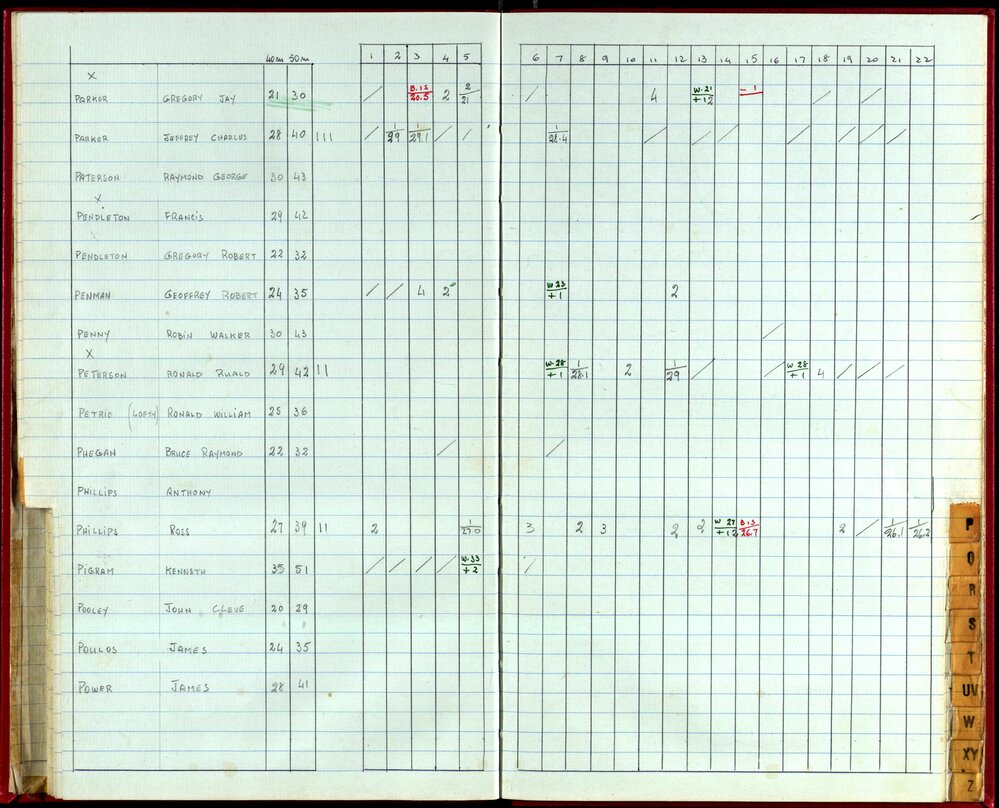 40m 50m 1 2 3 4 5 6 7 8 9 10 11 12 13 14 15 16 17 18 19 20 21 22
X
PARKER GREGORY JAY 21 30 / B.15/20.5 2 2/21 / 4 W.21/+12 -1 / /
PARKER JEFFREY CHARLES 28 40 III / 1/29 1/29.1 / / 1/28.4 / / / / / / /
PATERSON RAYMOND GEORGE 30 43
X
PENDLETON FRANCIS 29 42
PENDLETON GREGORY ROBERT 22 32
PENMAN GEOFFREY ROBERT 24 35 / / 4 2 W 23/+1 2
PENNY ROBIN WALKER 30 43 /
X
PETERSON RONALD RUALD 29 42 II W.28/+1 1/28.1 2 1/29 / / W 28/+1 4 / / /
PETRIE (LOFTY) RONALD WILLIAM 25 36
PHEGAN BRUCE RAYMOND 22 32 / /
PHILLIPS ANTHONY
PHILLIPS ROSS 27 39 II 2 1/27.0 3 2 3 2 2 W 27/+12 B.3/26.7 2 / 1/26.1 1/26.2
PIGRAM KENNETH 35 51 / / / / W.33/+2 /
POOLEY JOHN CLEVE 20 29
POULOS JAMES 24 35
POWER JAMES 28 41
P
Q
R
S
T
UV
W
XY
Z